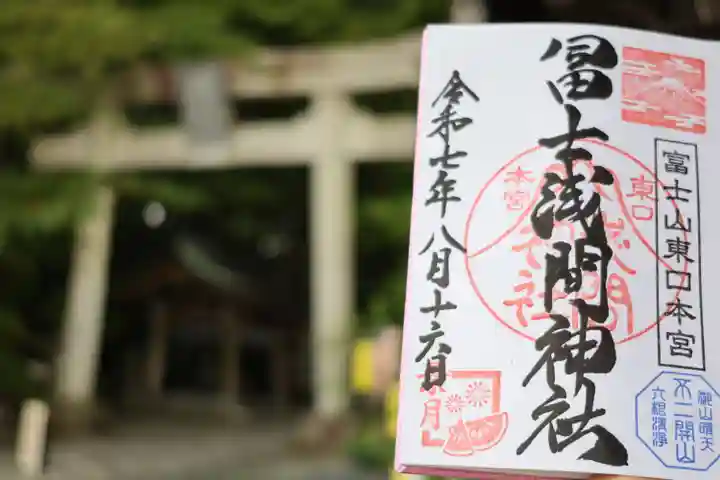 富士山東口本宮
冨士浅間神社
東口
本宮
浅間
神社
令和七年八月十六日
葉月
不二開山
六根清浄